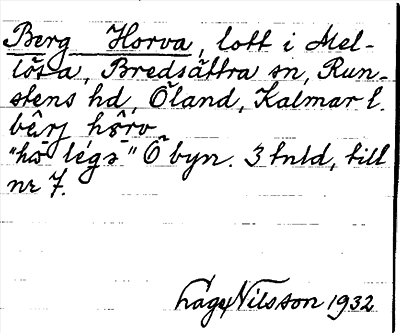 Berg Horva, lott i Mel-
lösa, Bredsättra sn, Run-
stens hd, Öland, Kalmar l.
bärj hörv
"hö legs" Ö byn. 3 tnld, till
nr 7.
Nilsson 1932